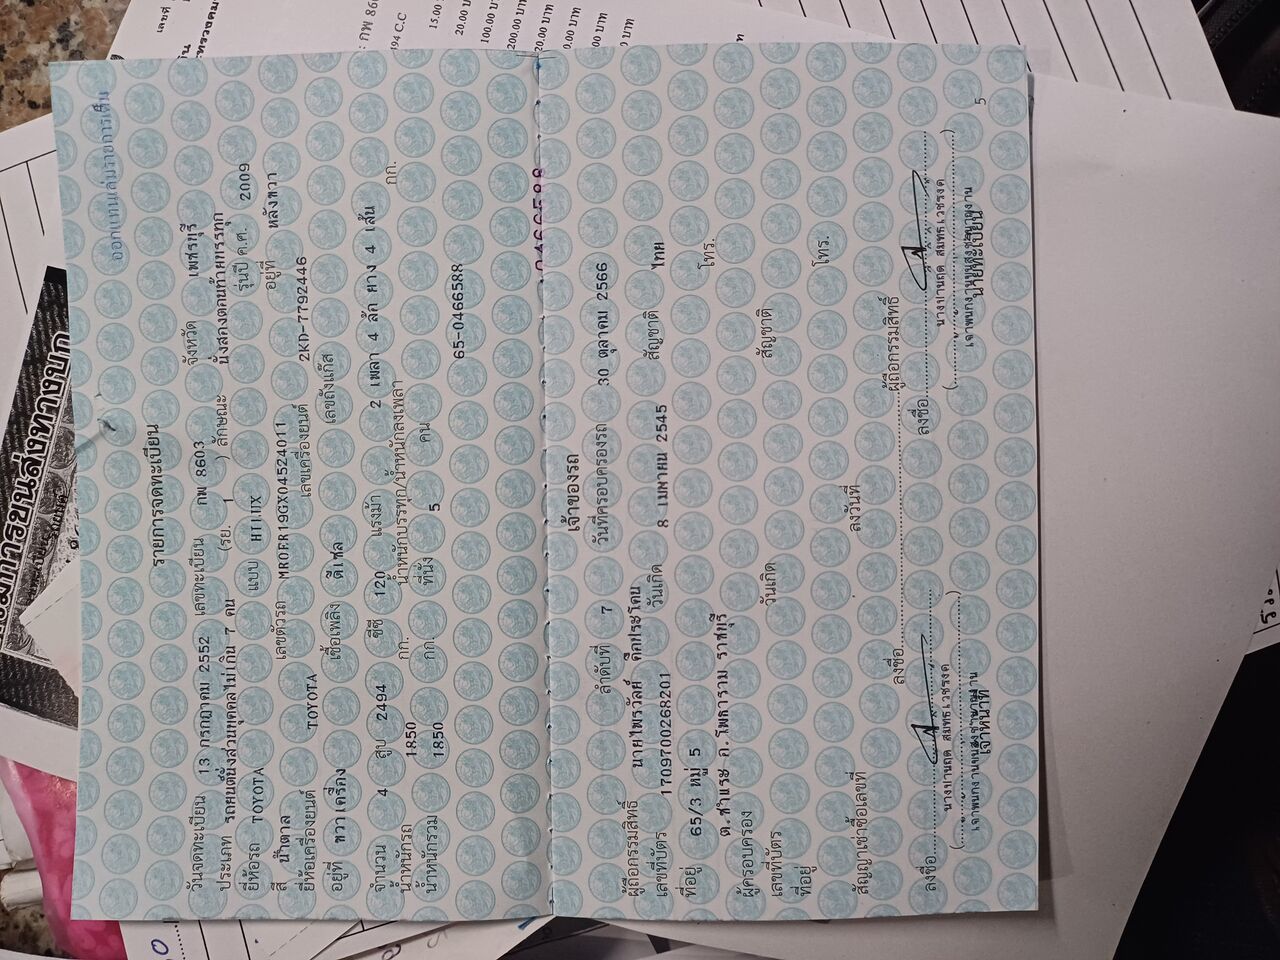 ออกแทนเล่มรายการเต็ม
รายการจดทะเบียน
วันจดทะเบียน 13 กรกฎาคม 2552 เลขทะเบียน กพ 8603 จังหวัด เพชรบุรี
ประเภท รถยนต์นั่งส่วนบุคคลไม่เกิน 7 คน (รย. 1 ) ลักษณะ นั่งสองตอนท้ายบรรทุก
ยี่ห้อรถ TOYOTA แบบ HILUX รุ่นปี ค.ศ. 2009
สี น้ำตาล เลขตัวรถ MR0ER19GX04524011 อยู่ที่ หลังขวา
ยี่ห้อเครื่องยนต์ TOYOTA เลขเครื่องยนต์ 2KD-7792446
อยู่ที่ ขวาเครื่อง เชื้อเพลิง ดีเซล เลขถังแก๊ส
จำนวน 4 สูบ 2494 ซีซี 120 แรงม้า 2 เพลา 4 ล้อ ยาง 4 เส้น
น้ำหนักรถ 1850 กก. น้ำหนักบรรทุก/น้ำหนักลงเพลา กก.
น้ำหนักรวม 1850 กก. ที่นั่ง 5 คน
65-0466588
เจ้าของรถ
ลำดับที่ 7 วันที่ครอบครองรถ 30 ตุลาคม 2566
ผู้ถือกรรมสิทธิ์ นายไพรวัลย์
เลขที่บัตร 1709700268201 วันเกิด 8 เมษายน 2545 สัญชาติ ไทย
ที่อยู่ 65/3 หมู่ 5 โทร.
ต.ชำแระ อ.โพธาราม ราชบุรี
ผู้ครอบครอง
เลขที่บัตร วันเกิด สัญชาติ
ที่อยู่ โทร.
สัญญาเช่าซื้อเลขที่ ลงวันที่
ลงชื่อ ผู้ถือกรรมสิทธิ์
ลงชื่อ ลงชื่อ
เจ้าหน้าที่ นายทะเบียน
5